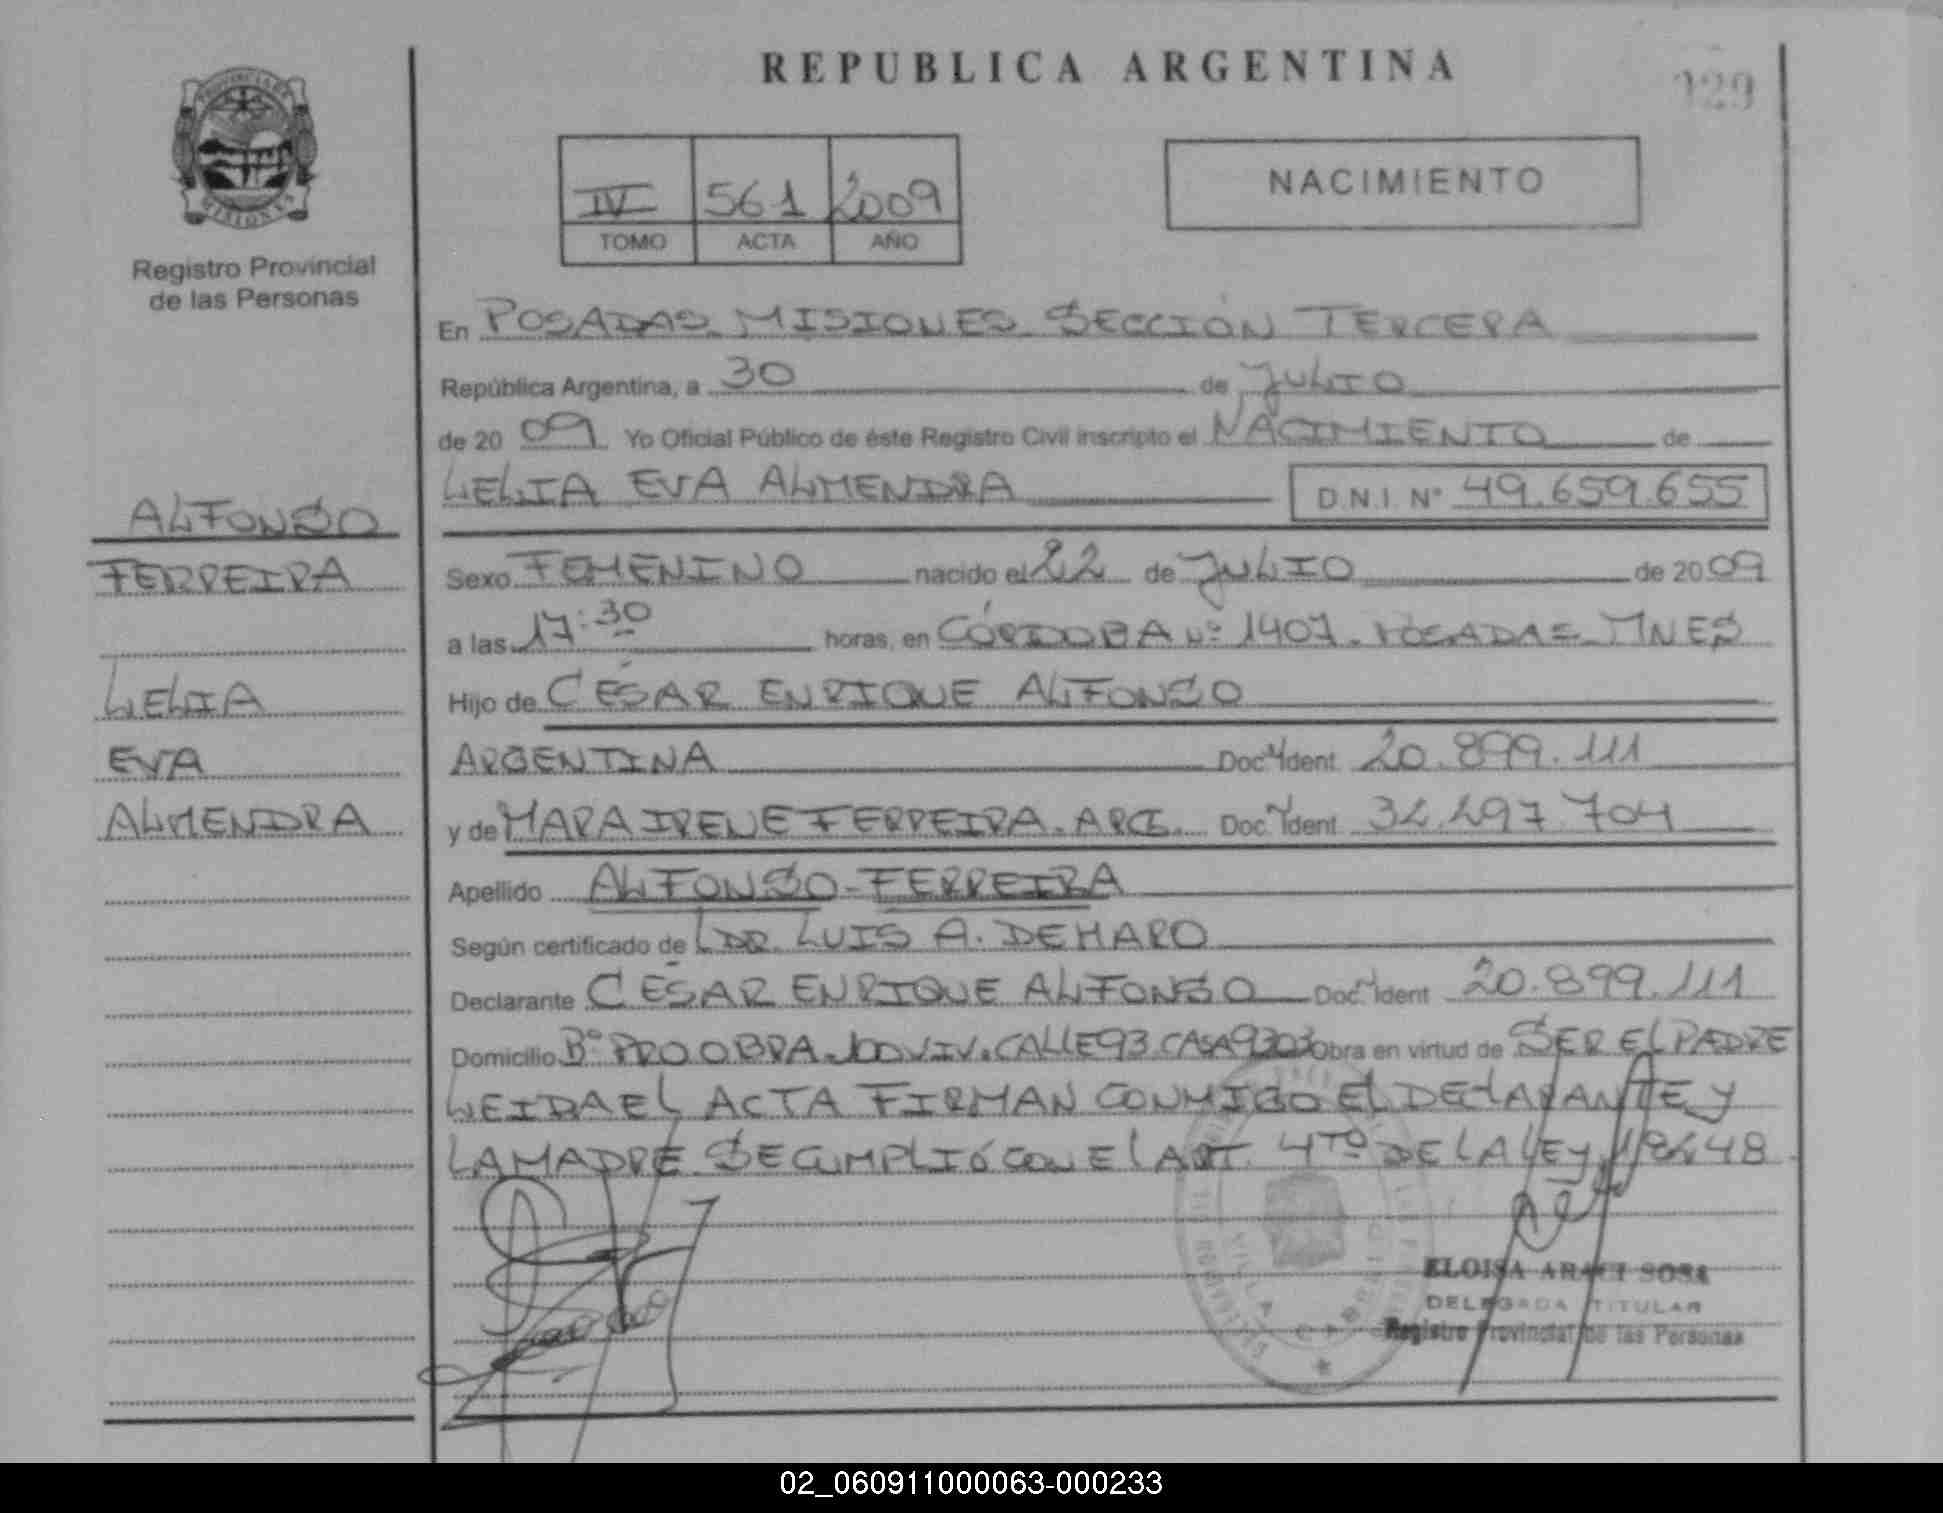 REPUBLICA ARGENTINA
129
PROVINCIA DE
MISIONES
Registro Provincial
de las Personas
IV 561 2009
TOMO ACTA AÑO
NACIMIENTO
En POSADAS MISIONES SECCIÓN TERCERA
República Argentina, a 30 de JULIO
de 20 09 Yo Oficial Público de éste Registro Civil inscripto el NACIMIENTO de
LELIA EVA ALMENDRA D.N.I. N° 49.659.655
ALFONSO
FERREIRA
LELIA
EVA
ALMENDRA
Sexo FEMENINO nacido el 22 de JULIO de 20 09
a las 17:30 horas, en CÓRDOBA N° 1407. POSADAS MNES
Hijo de CÉSAR ENRIQUE ALFONSO
ARGENTINA Doc. Ident. 20.899.111
y de MARA IRENE FERREIRA. ARG. Doc. Ident. 34.497.704
Apellido ALFONSO-FERREIRA
Según certificado de DR. LUIS A. DEMARO
Declarante CÉSAR ENRIQUE ALFONSO Doc. Ident 20.899.111
Domicilio B° PRO OBRA. 100 VIV. CALLE 93 CASA 9303 Obra en virtud de SER EL PADRE
LEIDA EL ACTA FIRMAN CONMIGO EL DECLARANTE Y
LA MADRE SE CUMPLIÓ CON EL ART. 4TO DE LA LEY 18248
VILLA CABELLO
ELOISA ARACI SOSA
DELEGADA TITULAR
Registro Provincial de las Personas
02_060911000063-000233